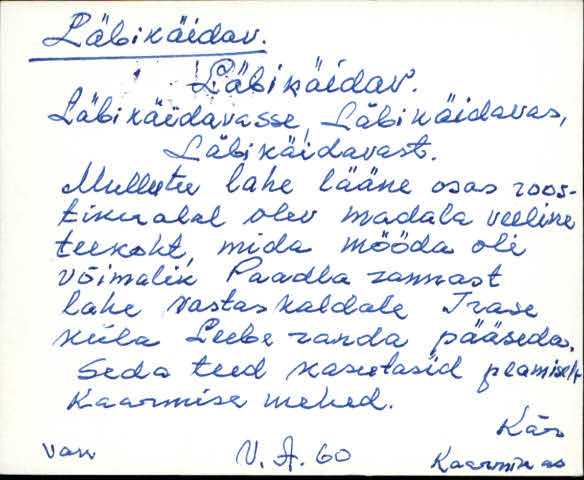 Läbikäidav.
Läbikäidav.
Läbikäidavasse, Läbikäidavas,
Läbikäidavast.
Mullutu lahe lääne osas roos-
tikualal olev madala veeline
teekoht, mida mööda oli
võimalik Paadla rannast
lahe vastaskaldale Irase
küla Leebe randa pääseda.
Seda teed kasutasid peamiselt
Kaarmise mehed.
Kär
van V. A. 60 Kaarmise as